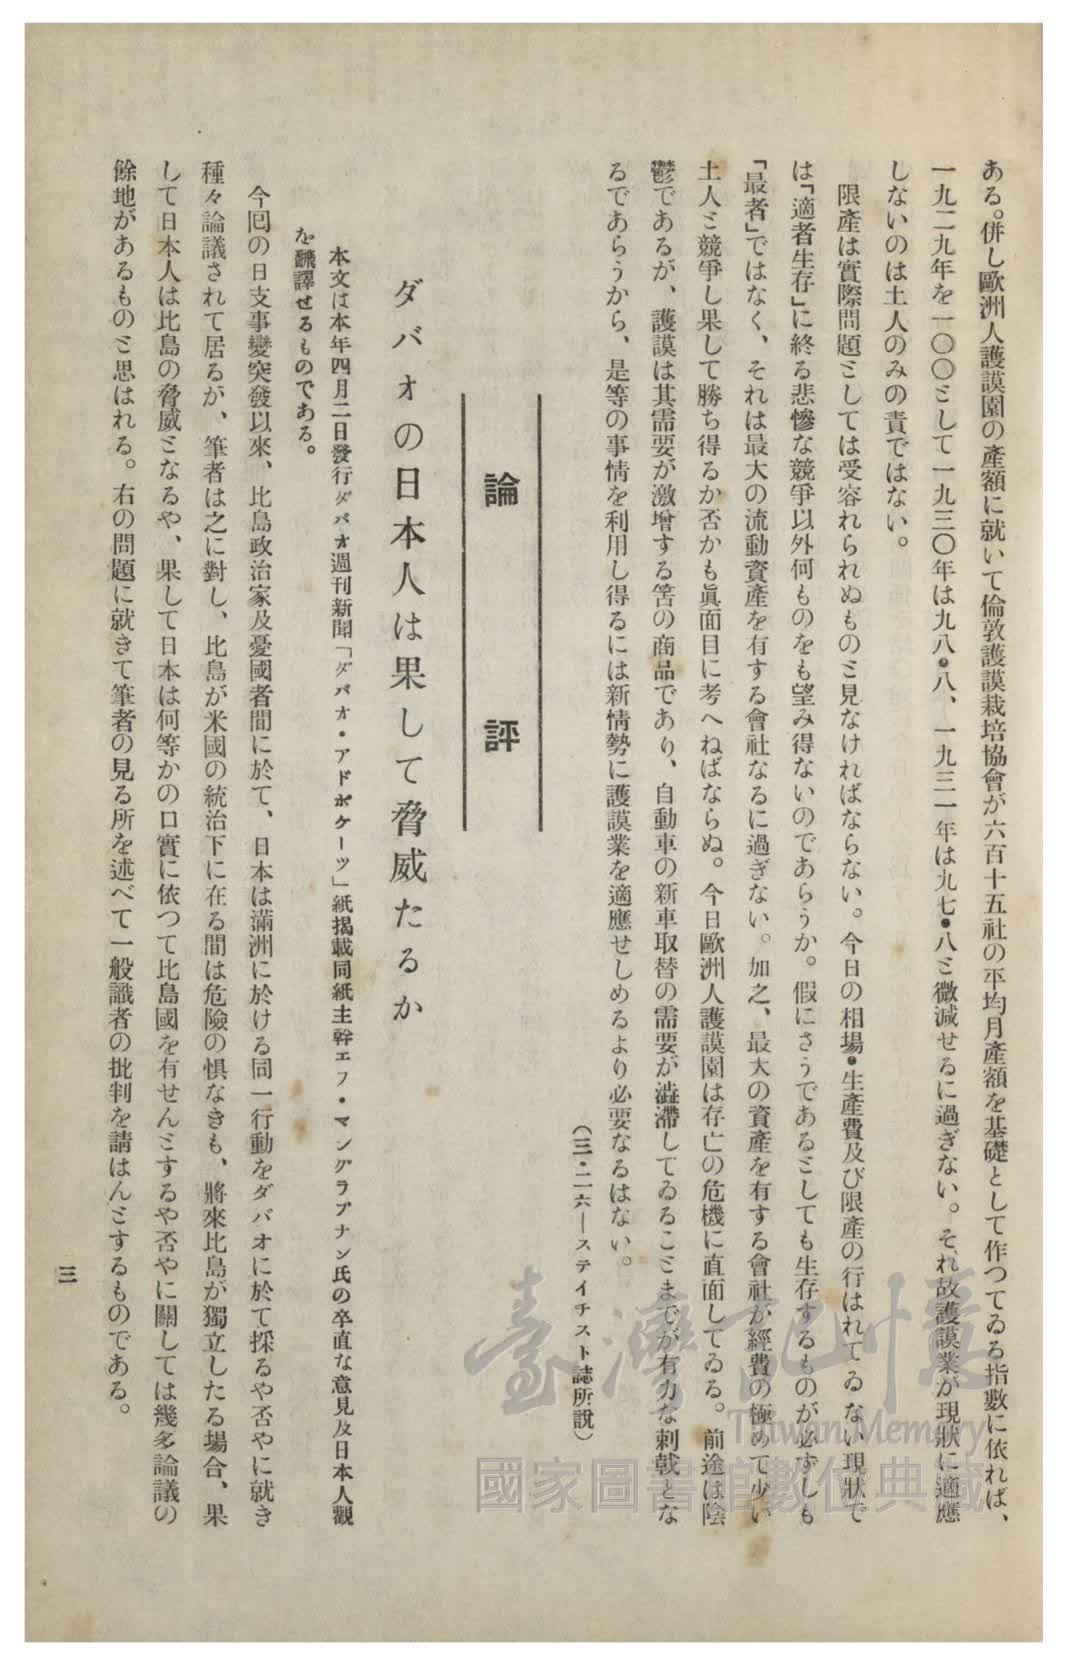 ある。併し歐洲人護謨園の產額に就いて倫敦護謨栽培協會が六百十五社の平均月產額を基礎として作つてゐる指數に依れば、
一九二九年を一〇〇として一九三〇年は九八•八、一九三一年は九七•八と微減せるに過ぎない。それ故護謨業が現狀に適應
しないのは土人のみの責ではない。
限產は實際問題としては受容れられぬものと見なければならない。今日の相場•生產費及び限產の行はれてゐない現狀で
は「適者生存」に終る悲慘な競爭以外何ものをも望み得ないのであらうか。假にさうであるとしても生存するものが必ずしも
「最者」ではなく、それは最大の流動資產を有する會社なるに過ぎない。加之、最大の資產を有する會社が經費の極めて少い
土人と競爭し果して勝ち得るか否かも眞面目に考へねばならぬ。今日歐洲人護謨園は存亡の危機に直面してゐる。前途は陰
鬱であるが、護謨は其需要が激增する筈の商品であり、自動車の新車取替の需要が澁滯してゐることまでが有力な刺戟とな
るであらうから、是等の事情を利用し得るには新情勢に護謨業を適應せしめるより必要なるはない。
（三・二六―ステイチスト誌所說）
論評
ダバオの日本人は果して脅威たるか
本文は本年四月二日發行ダバオ週刊新聞「ダバオ・アドボケーツ」紙揭載同紙主幹エフ・マングラプナン氏の卒直な意見及日本人觀
を飜譯せるものである。
今回の日支事變突發以來、比島政治家及憂國者間に於て、日本は滿洲に於ける同一行動をダバオに於て採るや否やに就き
種々論議されて居るが、筆者は之に對し、比島が米國の統治下に在る間は危險の惧なきも、將來比島が獨立したる場合、果
して日本人は比島の脅威となるや、果して日本は何等かの口實に依つて比島國を有せんとするや否やに關しては幾多論議の
餘地があるものと思はれる。右の問題に就きて筆者の見る所を述べて一般識者の批判を請はんとするものである。
三
臺灣記憶
Taiwan Memory
國家圖書館數位典藏